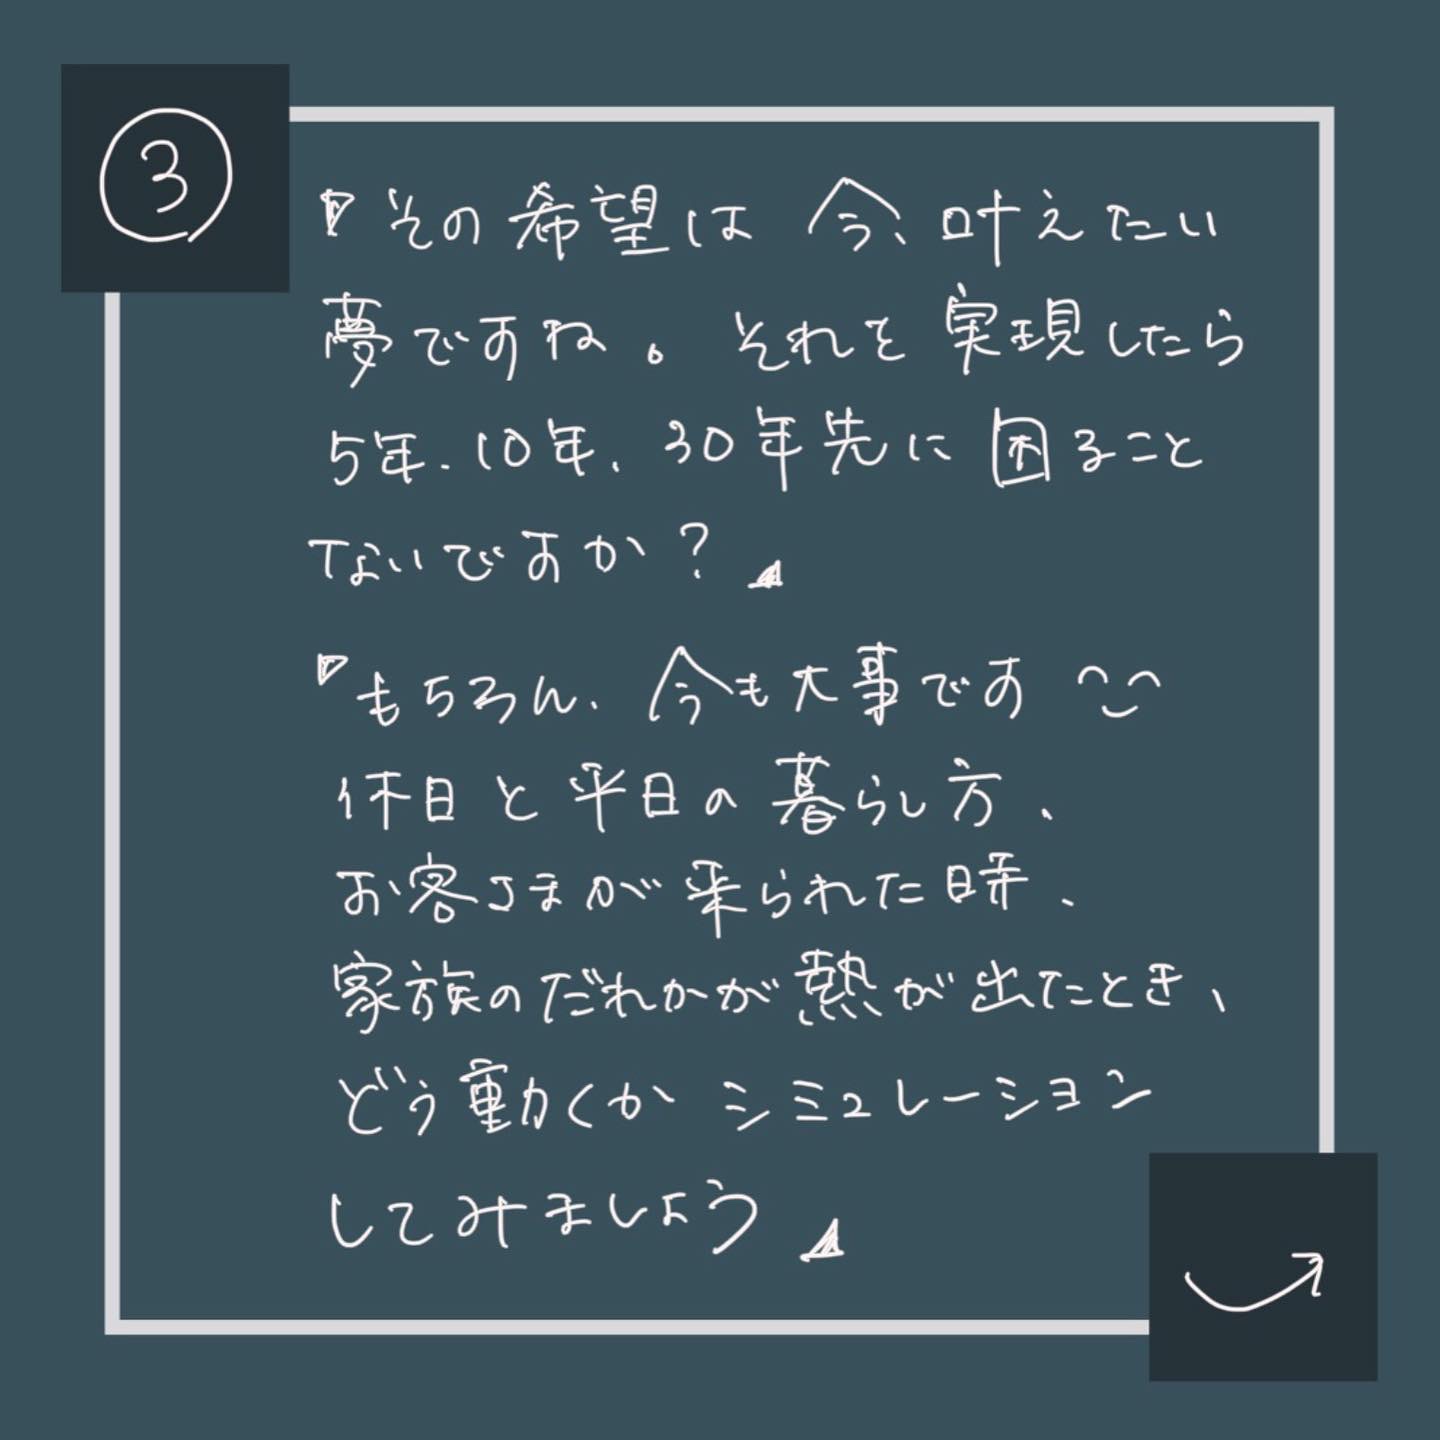 ③
その希望は今、叶えたい
夢ですね。それを実現したら
5年、10年、30年先に困ること
ないですか？
もちろん、今も大事です
休日と平日の暮らし方、
お客さまが来られた時、
家族のだれかが熱が出たとき、
どう動くかシミュレーション
してみましょう